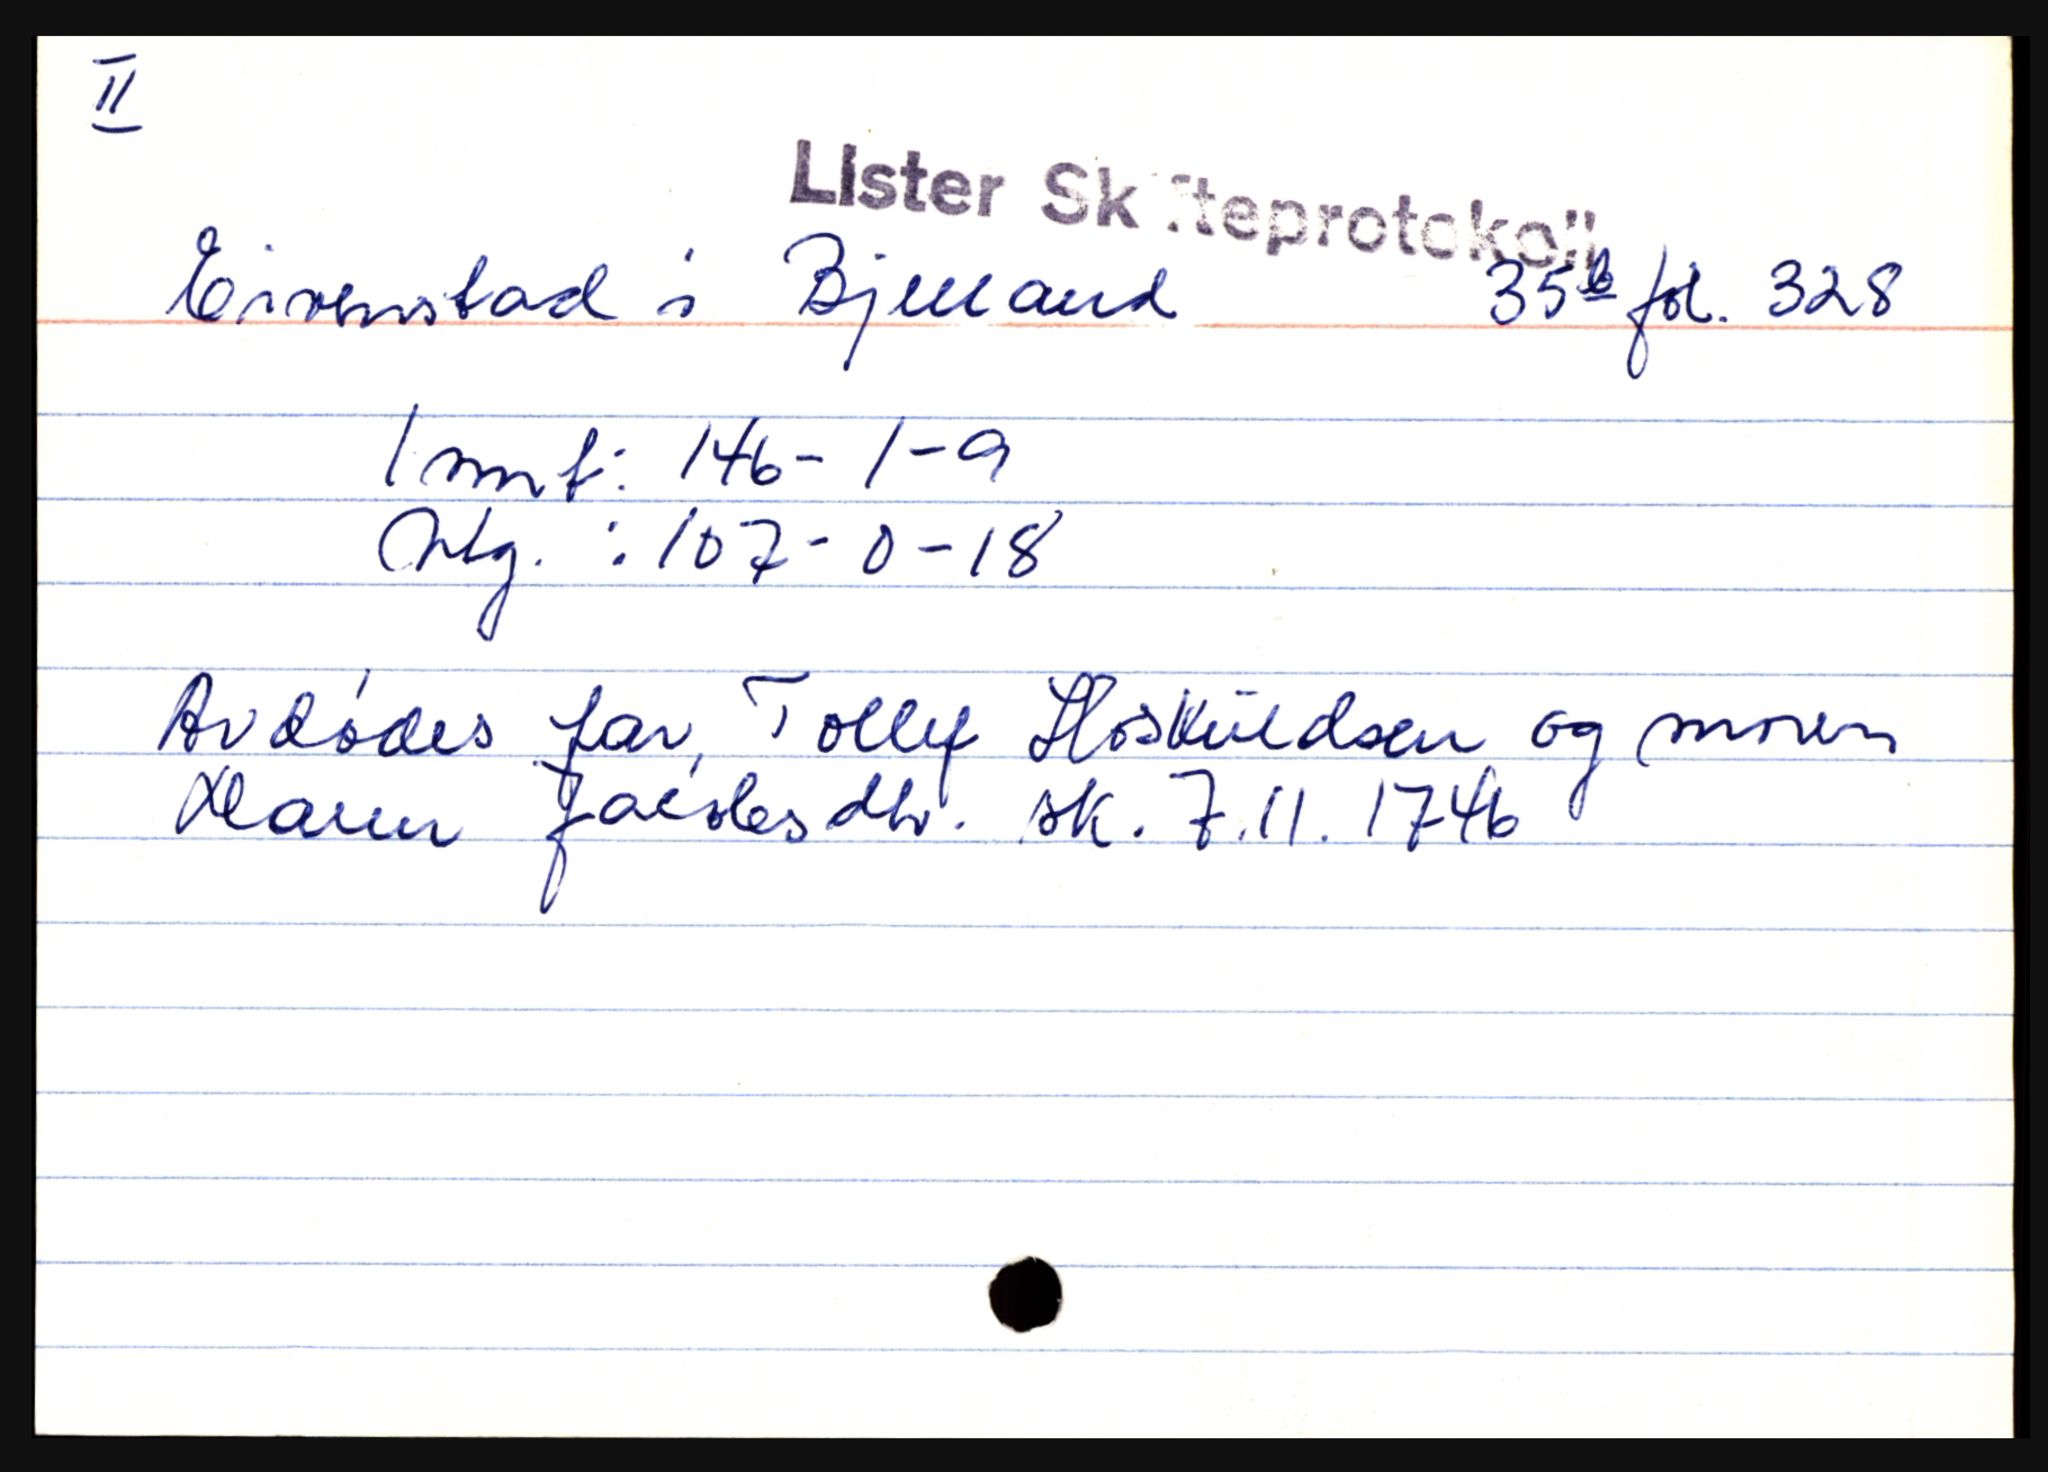 II
Lister Skifteprotokoll
Eivenstad i Bjelland 35b fol. 328
Innt: 146-1-9
Utlg. : 107-0-18
Avdødes far, Tollef Hosküldsen og moren
Maren Jacobsdtr. sk. 7.11.1746